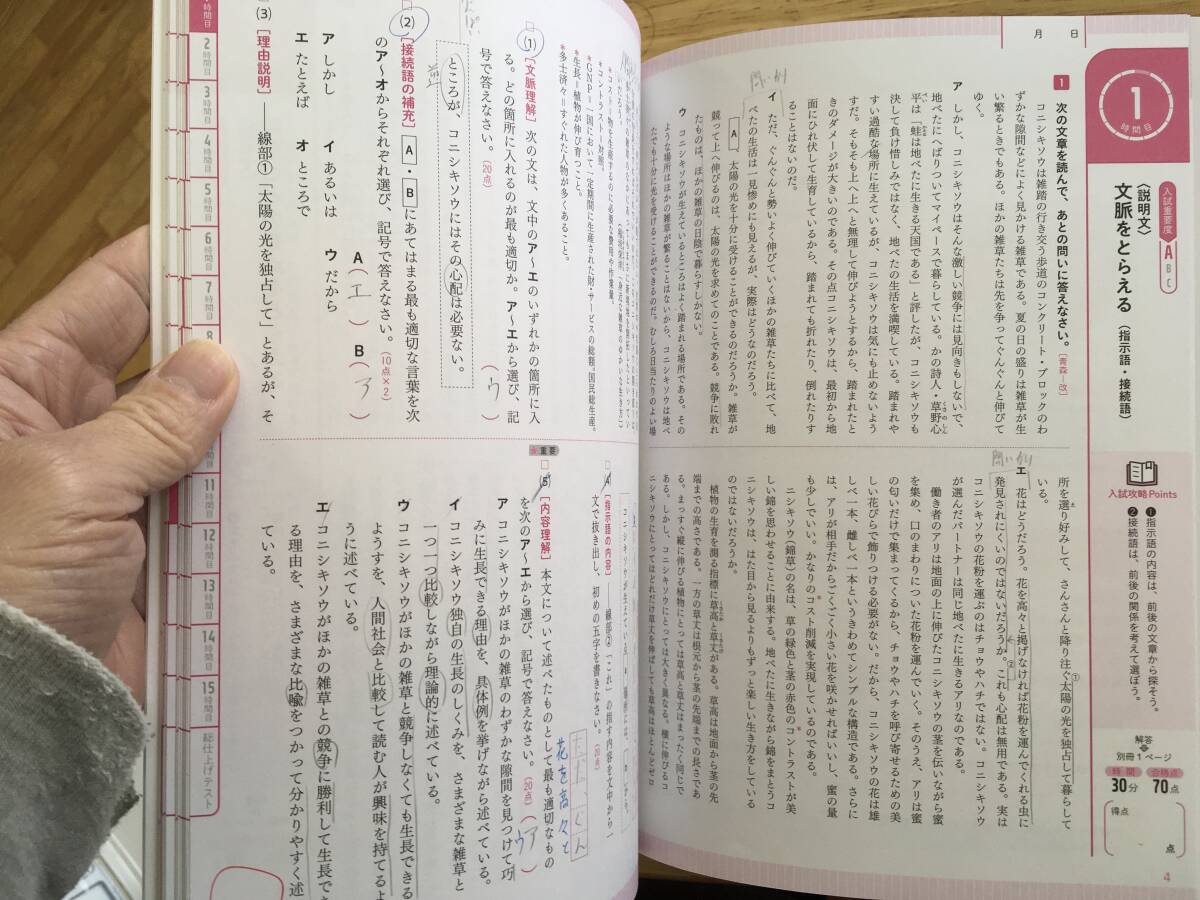 月 日
1
時間目
入試重要度
A B C
〈説明文〉
文脈をとらえる
(指示語・接続語)
入試攻略Points
❶指示語の内容は、前後の文章から探そう。
❷接続語は、前後の関係を考えて選ぼう。
解答
別冊1ページ
時間
30分
合格点
70点
得点
点
1 次の文章を読んで、あとの問いに答えなさい。〔青森―改〕
コニシキソウは雑踏の行き交う歩道のコンクリート・ブロックのわ
ずかな隙間などによく見かける雑草である。夏の日の盛りは雑草が生
い繁るときでもある。ほかの雑草たちは先を争ってぐんぐんと伸びて
ゆく。
ア しかし、コニシキソウはそんな激しい競争には見向きもしないで、
地べたにへばりついてマイペースで暮らしている。かの詩人・草野心
平は「蛙は地べたに生きる天国である」と評したが、コニシキソウも
決して負け惜しみではなく、地べたの生活を満喫している。踏まれや
すい過酷な場所に生えているが、コニシキソウは気にも止めないよう
だ。そもそも上へ上へと無理して伸びようとするから、踏まれたと
きのダメージが大きいのである。その点コニシキソウは、最初から地
面にひれ伏して生育しているから、踏まれても折れたり、倒れたりす
ることはないのだ。
問いかけ
イ ただ、ぐんぐんと勢いよく伸びていくほかの雑草たちに比べて、地
べたの生活は一見惨めにも見えるが、実際はどうなのだろう。
A 、太陽の光を十分に受けることができるのだろうか。雑草が
競って上へ伸びるのは、太陽の光を求めてのことである。競争に敗れ
たものは、ほかの雑草の日陰で暮らすしかない。
ウ コニシキソウが生えているところはよく踏まれる場所である。その
ような場所はほかの雑草が繁ることはないから、コニシキソウは地べ
たでも十分に光を受けることができるのだ。むしろ日当たりのよい場
所を選り好みして、さんさんと降り注ぐ太陽の光を独占して暮らして
いる。
①
問いかけ
エ 花はどうだろう。花を高々と掲げなければ花粉を運んでくれる虫に
発見されにくいのではないだろうか。これも心配は無用である。実は
②
コニシキソウの花粉を運ぶのはチョウやハチではない。コニシキソウ
が選んだパートナーは同じ地べたに生きるアリなのである。
働き者のアリは地面の上に伸びたコニシキソウの茎を伝いながら蜜
を集め、口のまわりについた花粉を運んでいく。そのうえ、アリは蜜
の匂いだけで集まってくるから、チョウやハチを呼び寄せるための美
しい花びらで飾りつける必要がない。だから、コニシキソウの花は雄
しべ一本、雌しべ一本というきわめてシンプルな構造である。さらに
は、アリが相手だからごくごく小さい花を咲かせればいいし、蜜の量
も少しでいい。かなりのコスト削減を実現しているのである。
ニシキソウ(錦草)の名は、草の緑色と茎の赤色のコントラストが美
しい錦を思わせることに由来する。地べたに生きながら錦をまとうコ
ニシキソウは、はた目から見るよりもずっと楽しい生き方をしている
のではないだろうか。
植物の生育を測る指標に草高と草丈がある。草高は地面から茎の先
端までの高さである。一方の草丈は根元から茎の先端までの長さであ
る。まっすぐ縦に伸びる植物にとっては草高と草丈はまったく同じで
ある。しかし、コニシキソウにとっては大きく異なる。横に伸びるコ
ニシキソウにとってはどれだけ草丈を伸ばしても草高はほとんどゼロ
4
*GNP=一国において一定期間に生産された財・サービスの総額。国民総生産。
*生長=植物が伸び育つこと。
*多士済々=すぐれた人物が多くあること。
□(1)[文脈理解] 次の文は、文中のア〜エのいずれかの箇所に入
る。どの箇所に入れるのが最も適切か。ア〜エから選び、記
号で答えなさい。(20点) (ウ)
ところが、コニシキソウにはその心配は必要ない。
逆
□(2)[接続語の補充] A・Bにあてはまる最も適切な言葉を次
のア〜オからそれぞれ選び、記号で答えなさい。(10点×2)
A(エ) B(ア)
ア しかし イ あるいは ウ だから
エ たとえば オ ところで
□(3)[理由説明] ――線部①「太陽の光を独占して」とあるが、そ
□(4)[指示語の内容] ――線部②「これ」の指す内容を文中から一
文で抜き出し、初めの五字を書きなさい。(20点)
花を高々と
重要
□(5)[内容理解] 本文について述べたものとして最も適切なもの
を次のア〜エから選び、記号で答えなさい。(20点)(ア)
ウ
ア コニシキソウがほかの雑草のわずかな隙間を見つけて巧
みに生長できる理由を、具体例を挙げながら述べている。
イ コニシキソウ独自の生長のしくみを、さまざまな雑草と
一つ一つ比較しながら理論的に述べている。
ウ コニシキソウがほかの雑草と競争しなくても生長できる
ようすを、人間社会と比較して読む人が興味を持てるよ
うに述べている。
エ コニシキソウがほかの雑草との競争に勝利して生長でき
る理由を、さまざまな比喩をつかって分かりやすく述
べている。
時間目
2時間目
3時間目
4時間目
5時間目
6時間目
7時間目
8
時間目
11時間目
12時間目
13時間目
14時間目
15時間目
総仕上げテスト